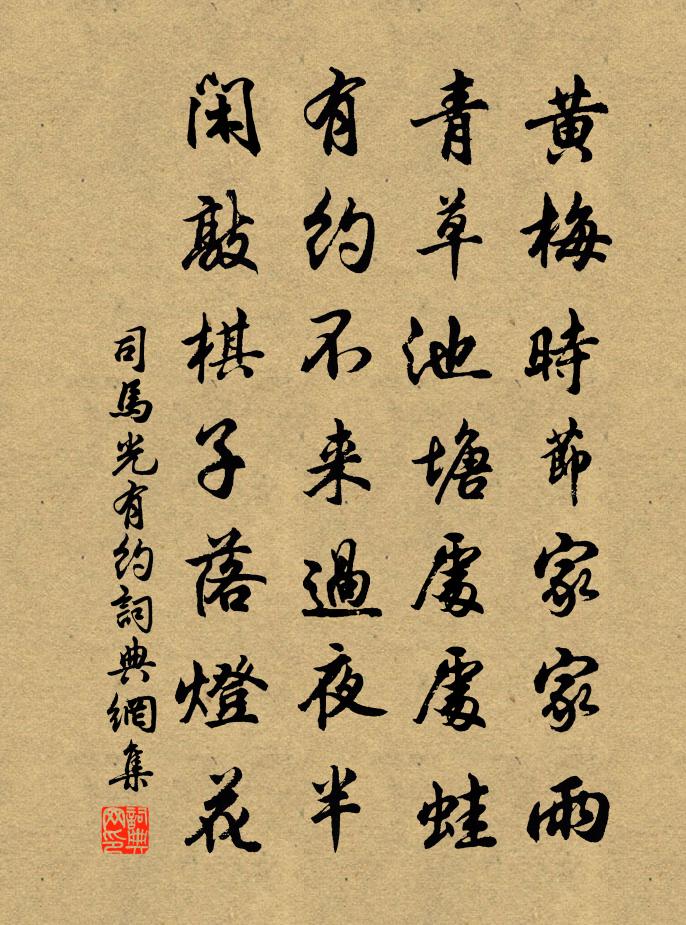 黄梅時節家家雨
青草池塘處處蛙
有約不来過夜半
閑敲棋子落燈花
司馬光有約詞典網集
詞典网印